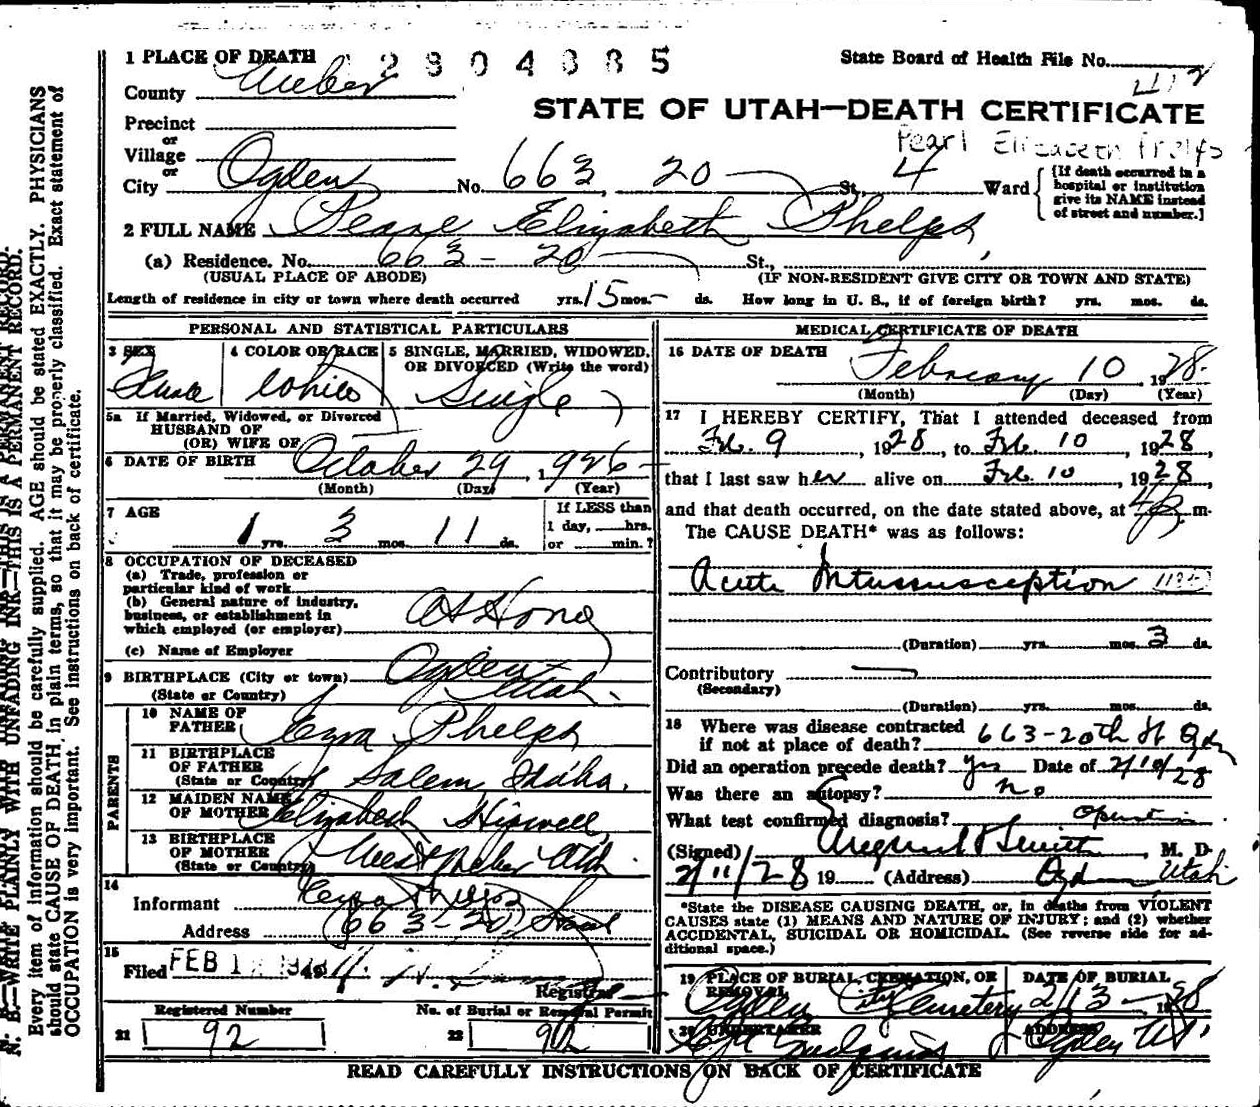 1 PLACE OF DEATH 12804385 State Board of Health File No.
County Weber
STATE OF UTAH—DEATH CERTIFICATE
Precinct
or
Village
Pearl Elizabeth Phelps
or
City Ogden No. 663 20 St, 4 Ward {[If death occurred in a hospital or institution give its NAME instead of street and number.]
2 FULL NAME Pearl Elizabeth Phelps
(a) Residence. No. 663-20 St.,
(USUAL PLACE OF ABODE) (IF NON-RESIDENT GIVE CITY OR TOWN AND STATE)
Length of residence in city or town where death occurred yrs. 15 mos. - ds. How long in U. S., if of foreign birth? yrs. mos. ds.
PERSONAL AND STATISTICAL PARTICULARS
3 SEX
4 COLOR OR RACE White
5 SINGLE, MARRIED, WIDOWED, OR DIVORCED (Write the word) Single
5a If Married, Widowed, or Divorced
HUSBAND OF
(OR) WIFE OF
6 DATE OF BIRTH October 29, 1926
(Month) (Day) (Year)
7 AGE 1 yrs. 3 mos. 11 ds.
If LESS than
1 day, hrs.
or min.?
8 OCCUPATION OF DECEASED
(a) Trade, profession or
particular kind of work
(b) General nature of industry,
business, or establishment in
which employed (or employer) At Home
(c) Name of Employer
9 BIRTHPLACE (City or town) Ogden
(State or Country) Utah.
PARENTS
10 NAME OF FATHER Ezra Phelps
11 BIRTHPLACE OF FATHER (State or Country) Salem, Idaho.
12 MAIDEN NAME OF MOTHER Elizabeth Hipwell
13 BIRTHPLACE OF MOTHER (State or Country) West Weber Utah.
14
Informant Ezra Phelps
Address 663-20, Street
15
Filed FEB
Registrar
Registered Number No. of Burial or Removal Permit
21 92 22 92
MEDICAL CERTIFICATE OF DEATH
16 DATE OF DEATH February 10, 1928.
(Month) (Day) (Year)
17 I HEREBY CERTIFY, That I attended deceased from
Feb. 9, 1928, to Feb. 10, 1928,
that I last saw her alive on Feb. 10, 1928,
and that death occurred, on the date stated above, at m.
The CAUSE DEATH* was as follows:
Acute Intussusception
(Duration) yrs. mos. 3 ds.
Contributory —
(Secondary)
(Duration) yrs. mos. ds.
18 Where was disease contracted
if not at place of death? 663-20th St Ogden
Did an operation precede death? Yes Date of 2/10/28
Was there an autopsy? no
What test confirmed diagnosis? Operation
(Signed) M. D.
2/11/28 19 (Address) Ogden Utah
*State the DISEASE CAUSING DEATH, or, in deaths from VIOLENT
CAUSES state (1) MEANS AND NATURE OF INJURY; and (2) whether
ACCIDENTAL, SUICIDAL OR HOMICIDAL. (See reverse side for ad-
ditional space.)
19 PLACE OF BURIAL, CREMATION, OR REMOVAL Ogden City Cemetery
DATE OF BURIAL 2/13-1928
20 UNDERTAKER
ADDRESS Ogden Ut
READ CAREFULLY INSTRUCTIONS ON BACK OF CERTIFICATE
N. B.—WRITE PLAINLY WITH UNFADING INK—THIS IS A PERMANENT RECORD.
Every item of information should be carefully supplied. AGE should be stated EXACTLY. PHYSICIANS
should state CAUSE OF DEATH in plain terms, so that it may be properly classified. Exact statement of
OCCUPATION is very important. See instructions on back of certificate.